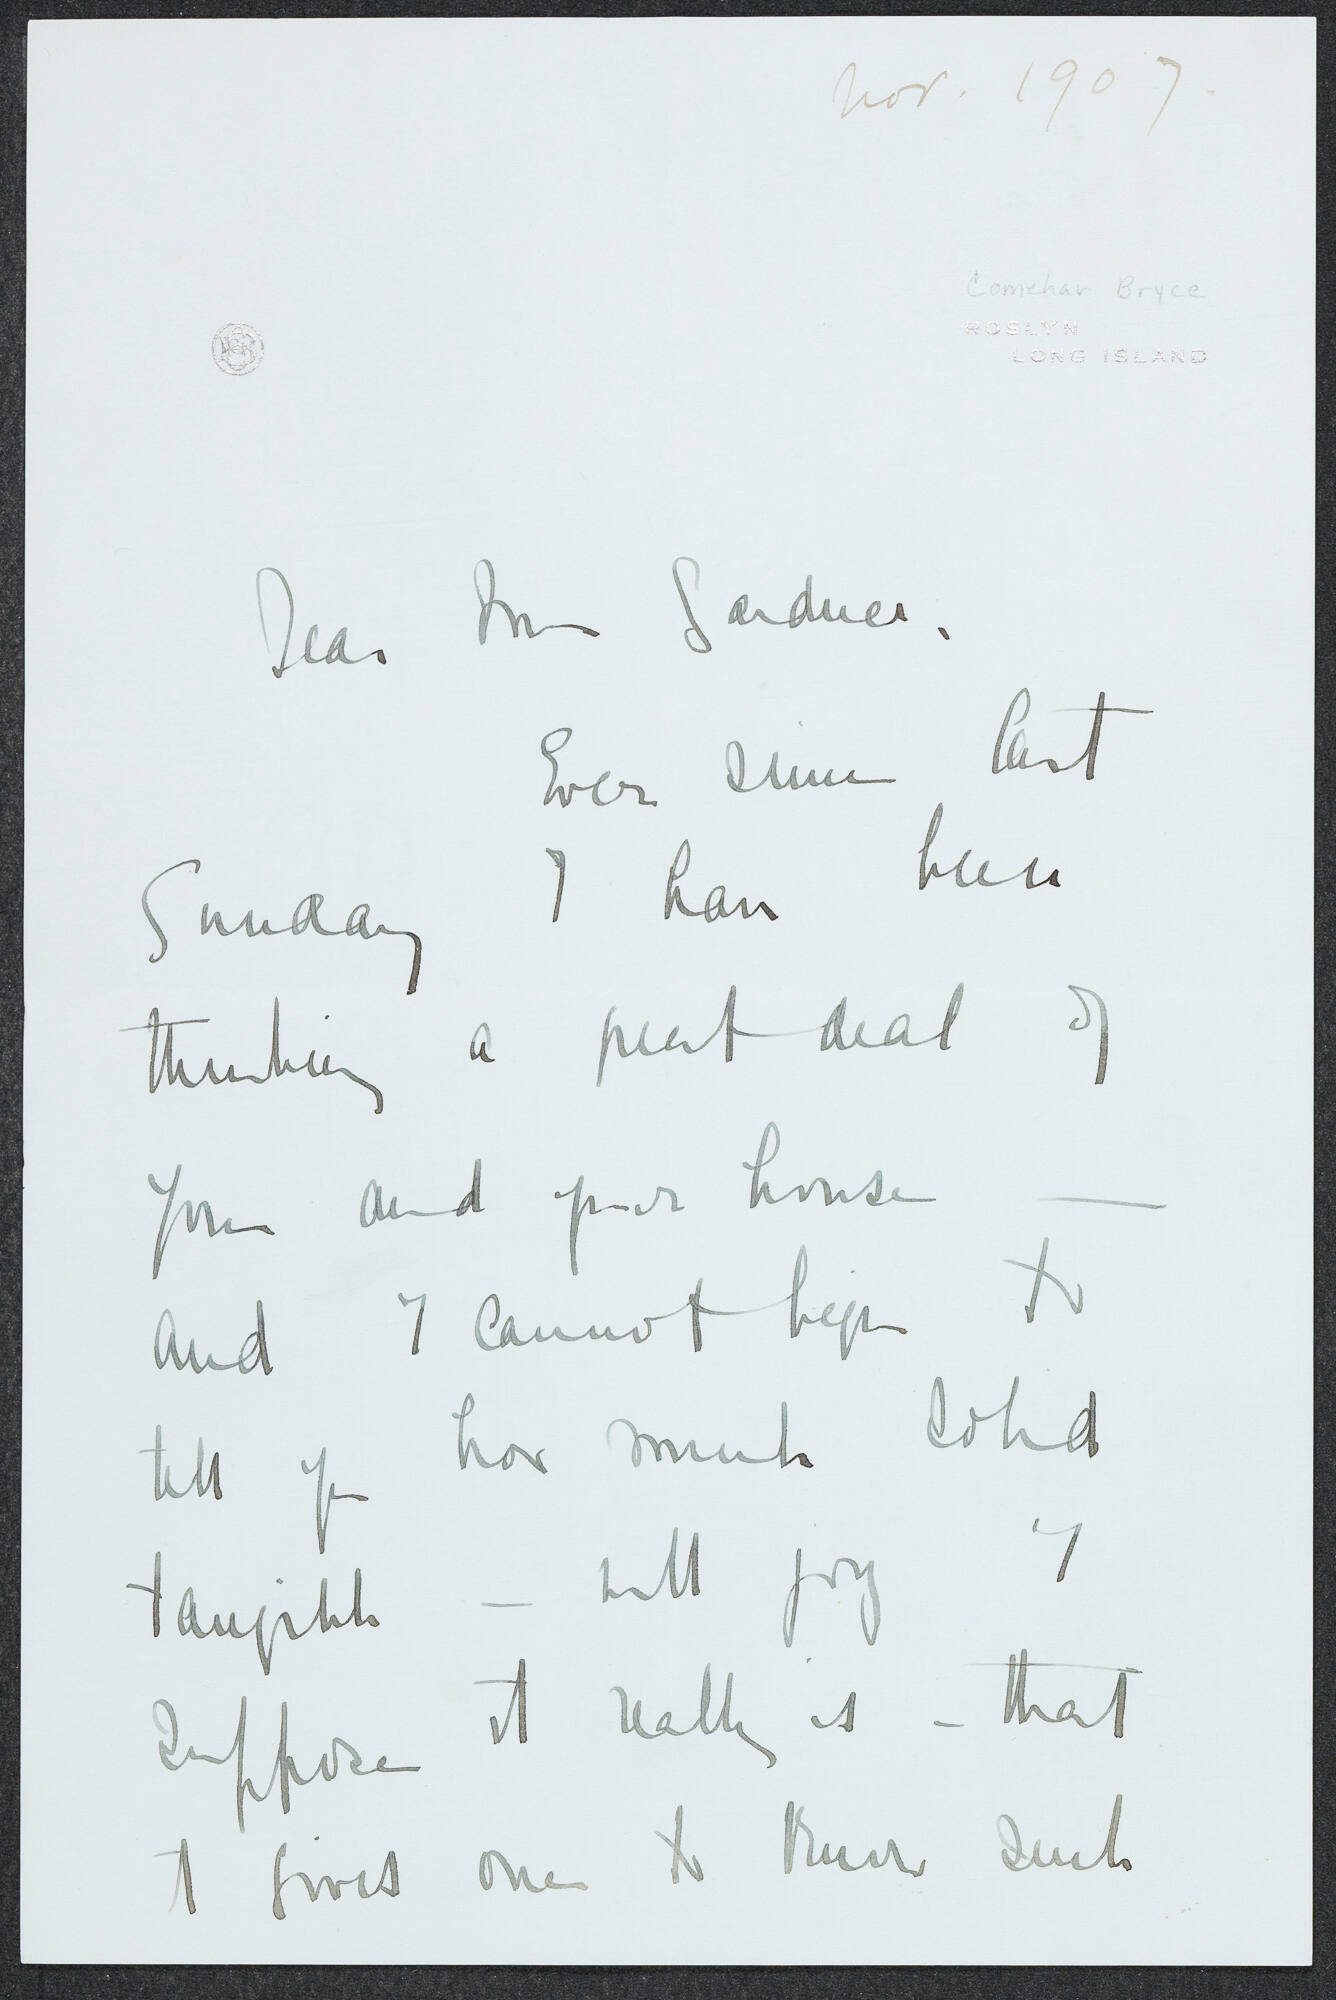 Nov. 1907.
Bryce
ROSLYN
LONG ISLAND
Dear Mrs Gardner.
Ever since last
Sunday I have been
thinking a great deal of
you and your house —
and I cannot begin to
tell you how much solid
tangible — well joy I
suppose it really is — that
it gives one to know such